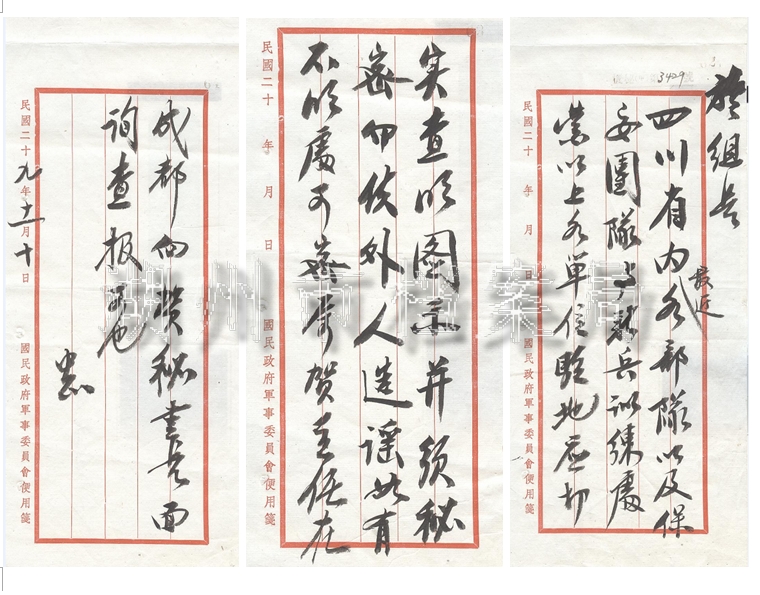 於組長
3429
四川省內各部隊以及保
最近
安團隊與新兵訓練處
營以上各單位駐地應切
民國二十 年 月 日 國民政府軍事委員會便用箋
實查明圖示并須秘
密勿使外人造謠如有
不明處可密賀主任在
民國二十 年 月 日 國民政府軍事委員會便用箋
成都向賀秘書長面
詢查報可也
中正
民國二十九年十一月十日 國民政府軍事委員會便用箋